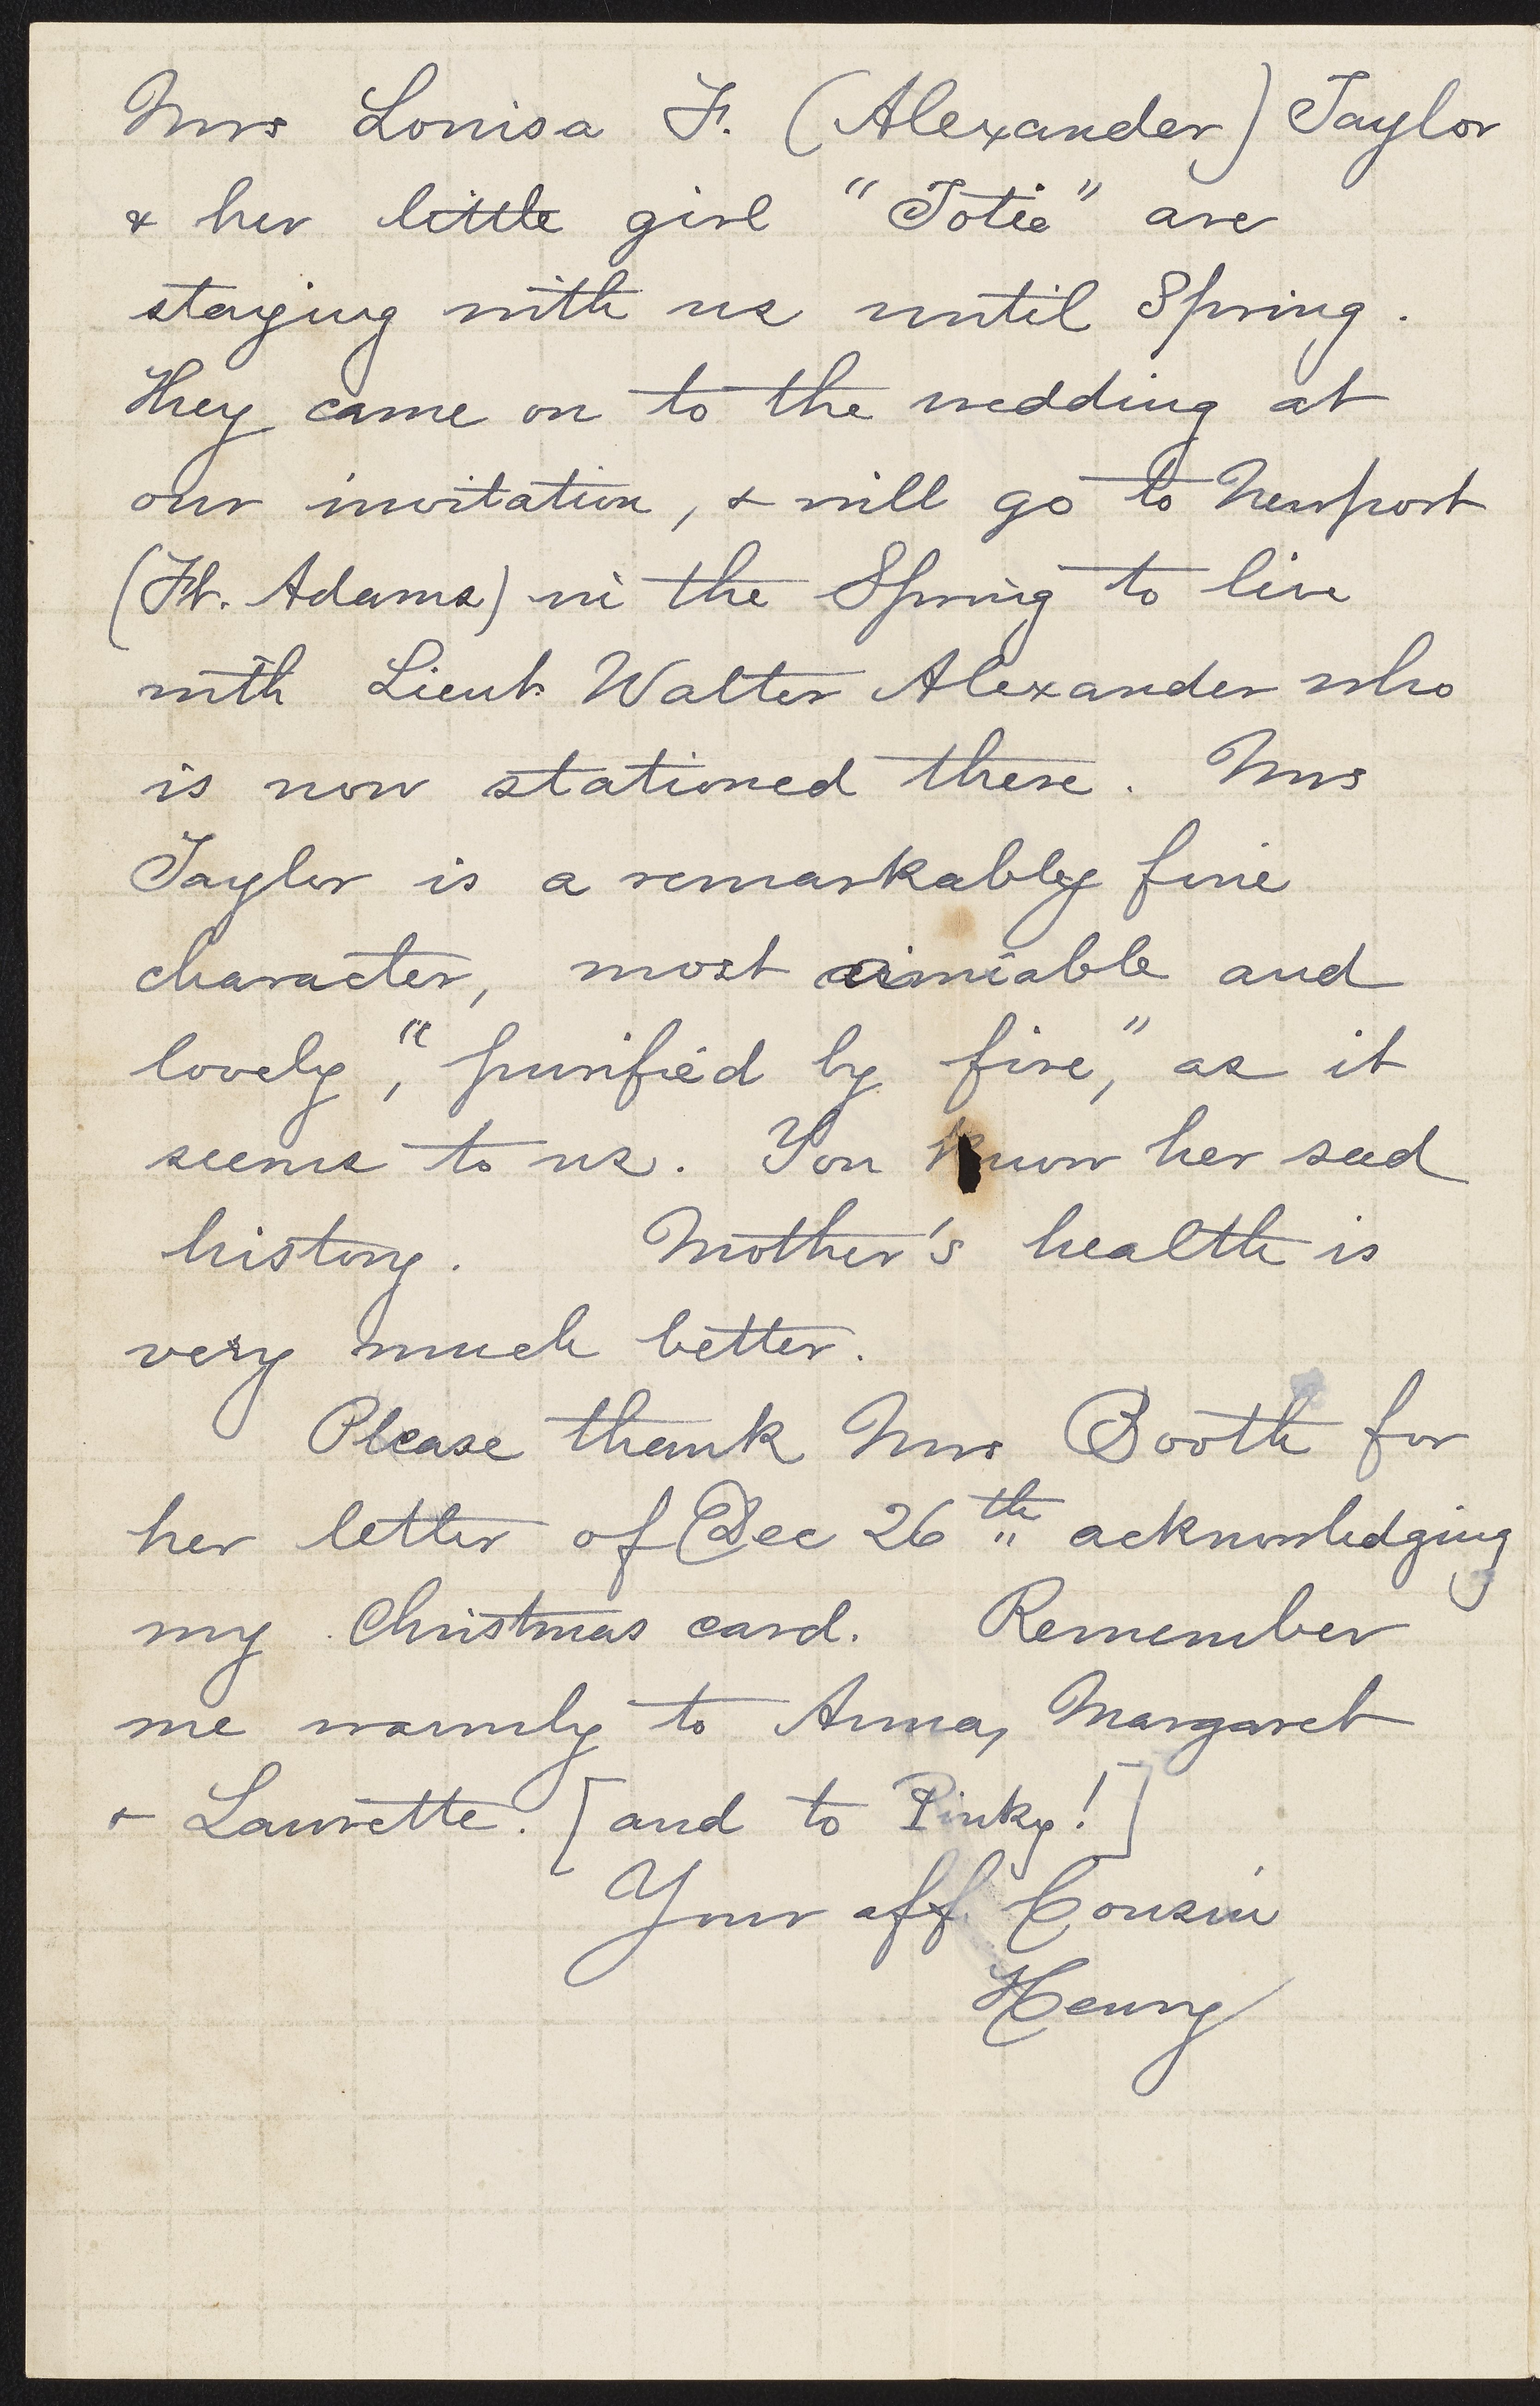 Mrs Louisa F. (Alexander) Taylor
& her little girl "Totie" are
staying with us until Spring.
They came on to the wedding at
our invitation, & will go to Newport
(Ft. Adams) in the Spring to live
with Lieut. Walter Alexander who
is now stationed there. Mrs
Taylor is a remarkably fine
character, most aimiable and
lovely, "purified by fire," as it
seems to us. You know her sad
history. Mother's health is
very much better.
Please thank Mrs Booth for
her letter of Dec 26th acknowledging
my Christmas card. Remember
me warmly to Anna, Margaret
& Laurette. [and to Pinky!]
Your aff. Cousin
Henry